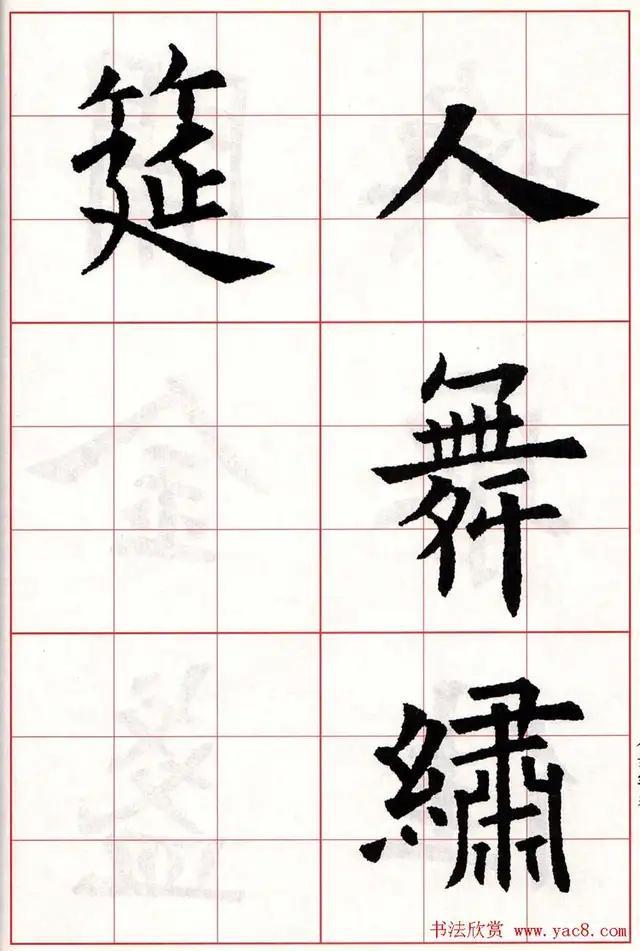 人舞繡
筵
书法欣赏 www.yac8.com